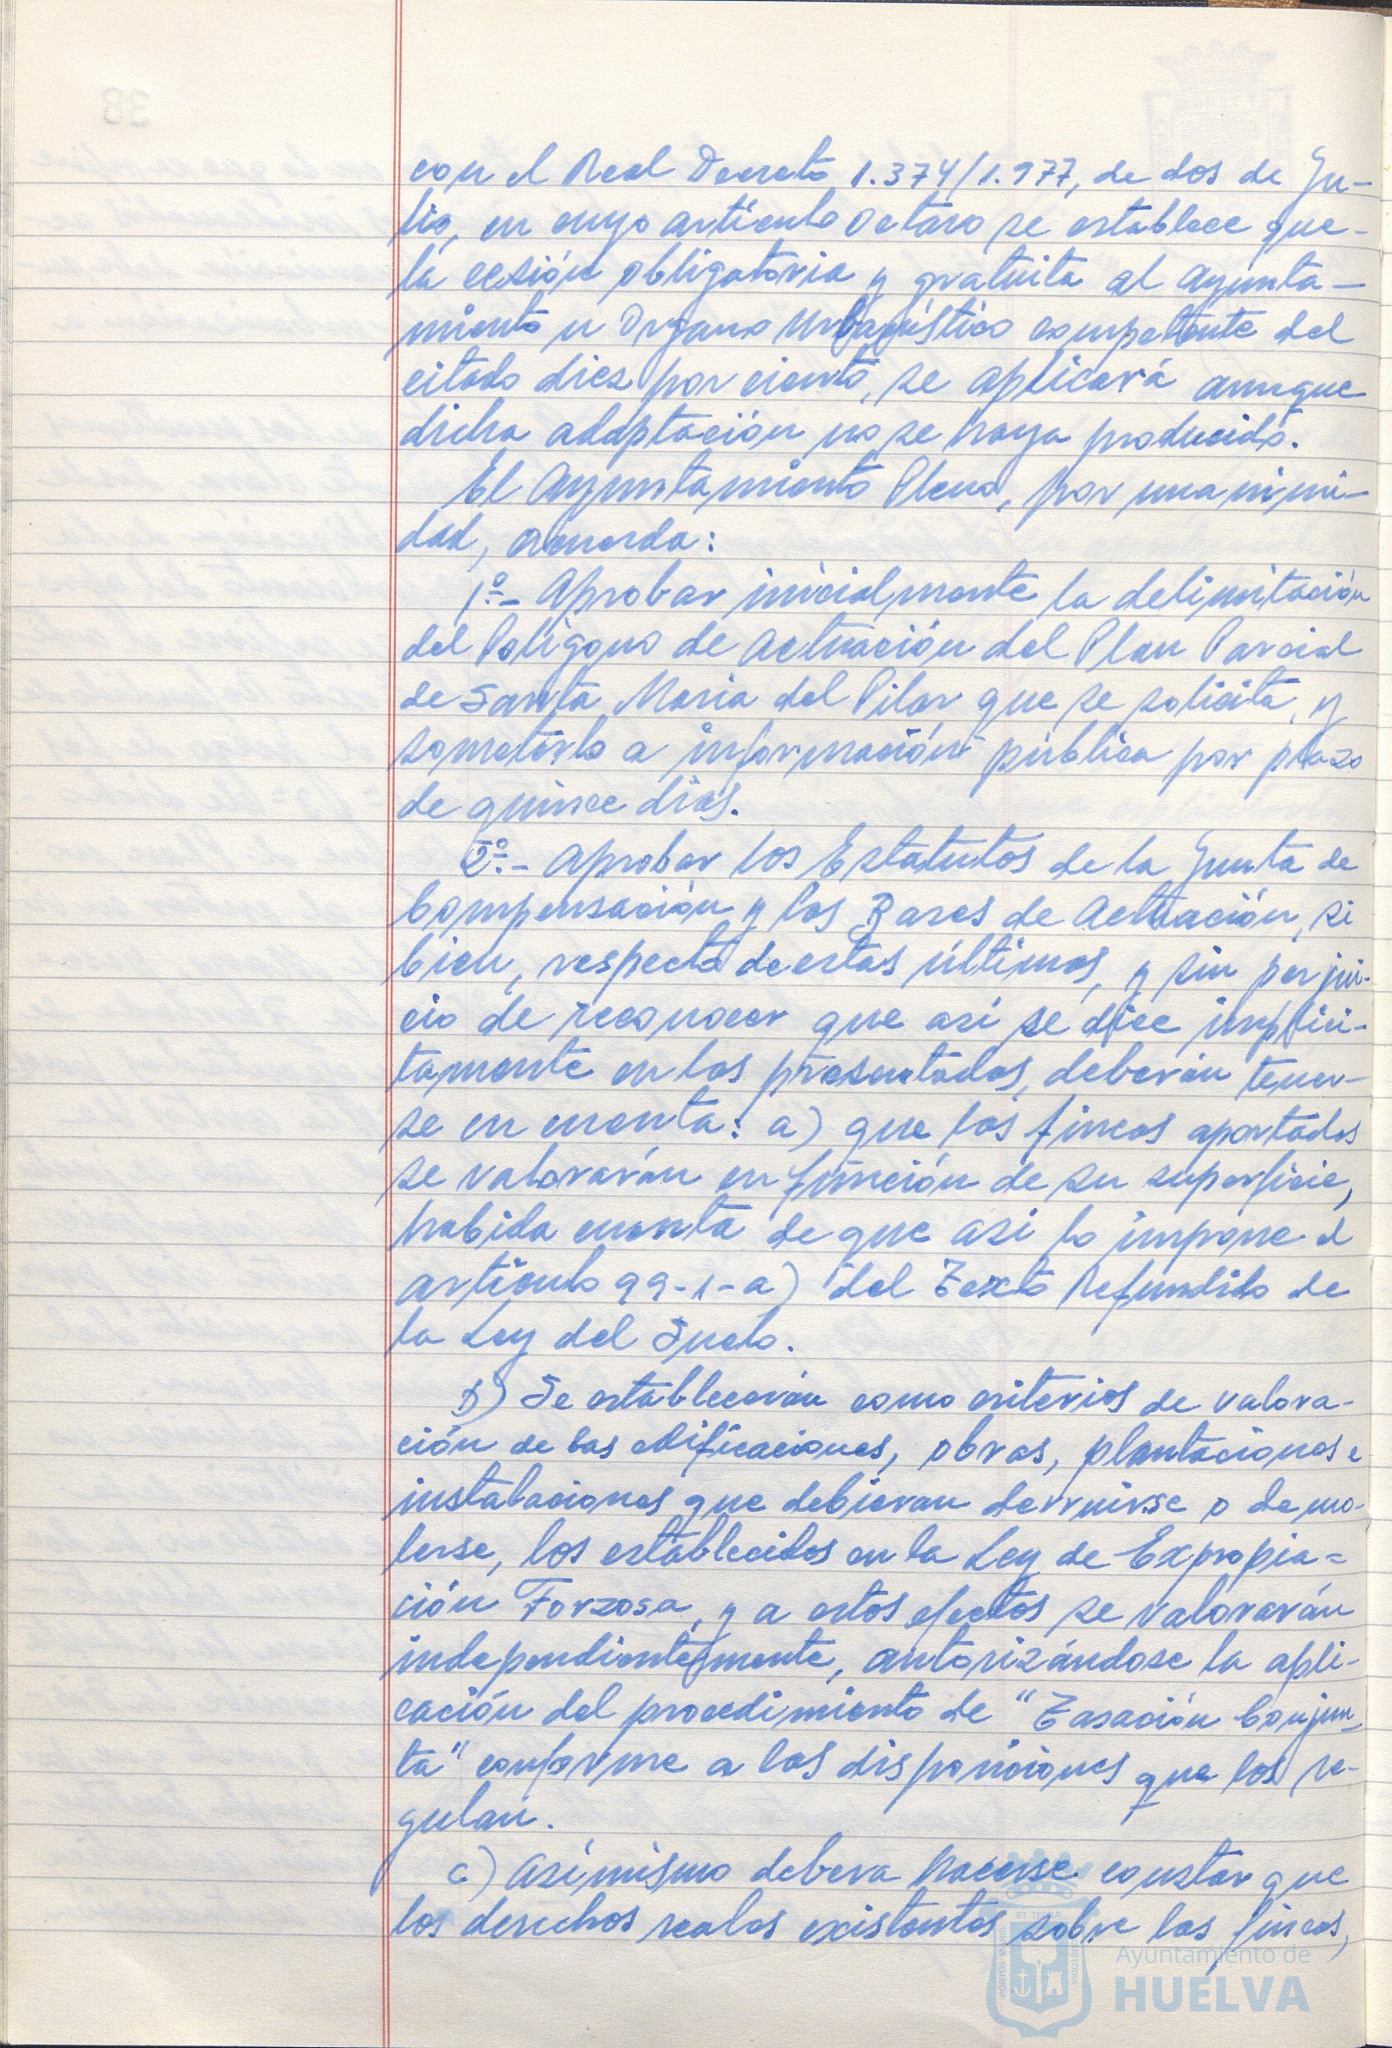 con el Real Decreto 1.374/1.977, de dos de Ju-
lio, en cuyo artículo octavo se establece que-
la cesión obligatoria y gratuita al Ayunta-
miento u Organo Urbanístico competente del
citado diez por ciento, se aplicará aunque
dicha adaptación no se haya producido.
El Ayuntamiento Pleno, por unanimi-
dad, acuerda:
1º.- Aprobar inicialmente la delimitación
del Polígono de Actuación del Plan Parcial
de Santa Maria del Pilar que se solicita, y
someterlo a información pública por plazo
de quince dias.
2º.- Aprobar los Estatutos de la Junta de
Compensación y las Bases de Actuación, si
bien, respecto de estas últimas, y sin perjui-
cio de reconocer que asi se dice implici-
tamente en las presentadas, deberán tener-
se en cuenta: a) que las fincas aportadas
se valorarán en función de su superficie,
habida cuenta de que asi lo impone el
artículo 99-1-a) del Texto Refundido de
la Ley del Suelo.
b) Se establecerán como criterios de valora-
ción de las edificaciones, obras, plantaciones e
instalaciones que debieran derruirse o demo-
lerse, los establecidos en la Ley de Expropia=
ción Forzosa, y a estos efectos se valorarán
independientemente, autorizándose la apli-
cación del procedimiento de "Tasación Conjun-
ta" conforme a las disposiciones que los re-
gulan.
c) Asímismo debera hacerse constar que
los derechos reales existentes sobre las fincas,
Ayuntamiento de
HUELVA